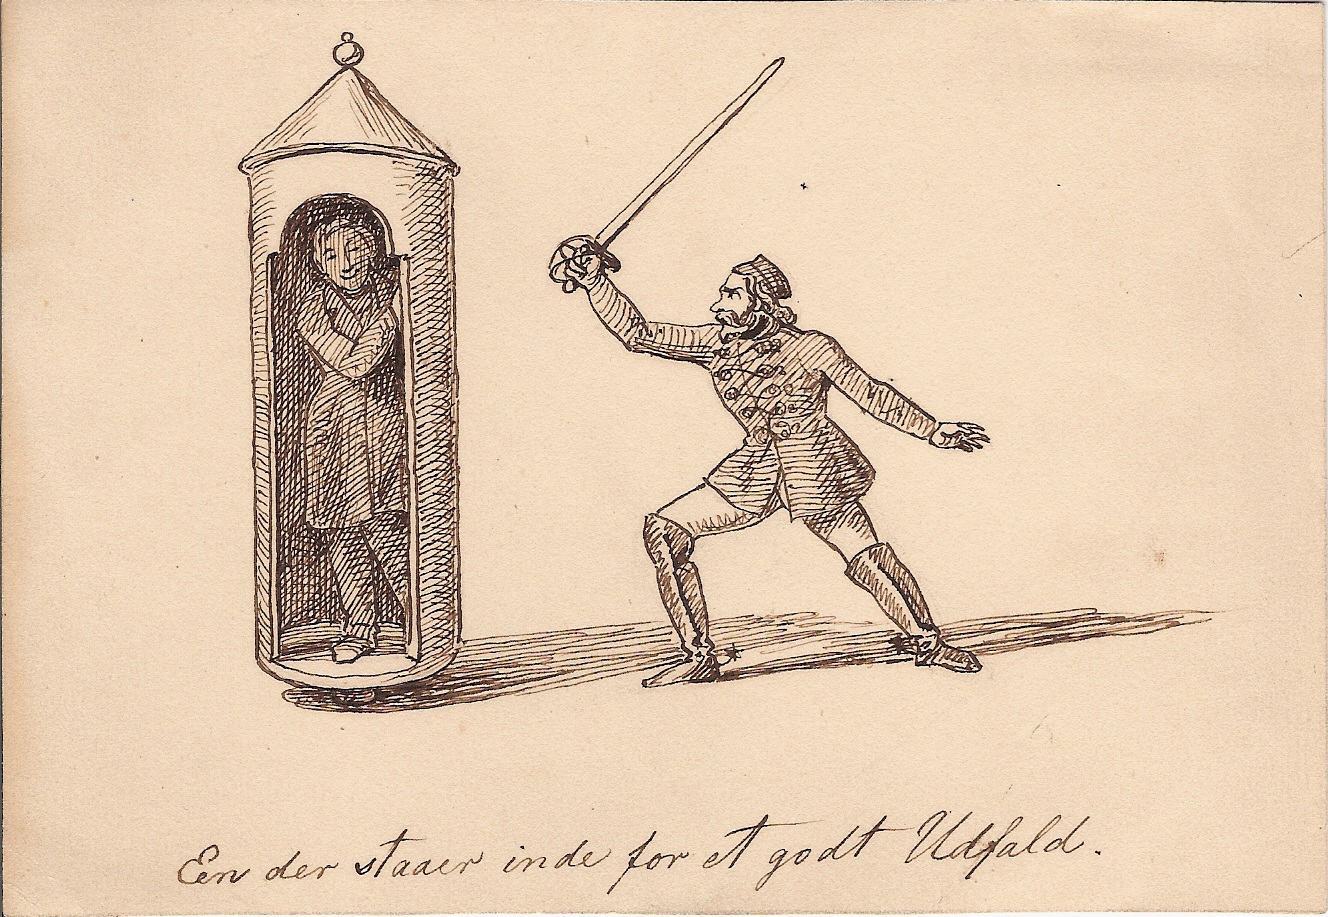 Een der staaer inde for et godt Udfald.